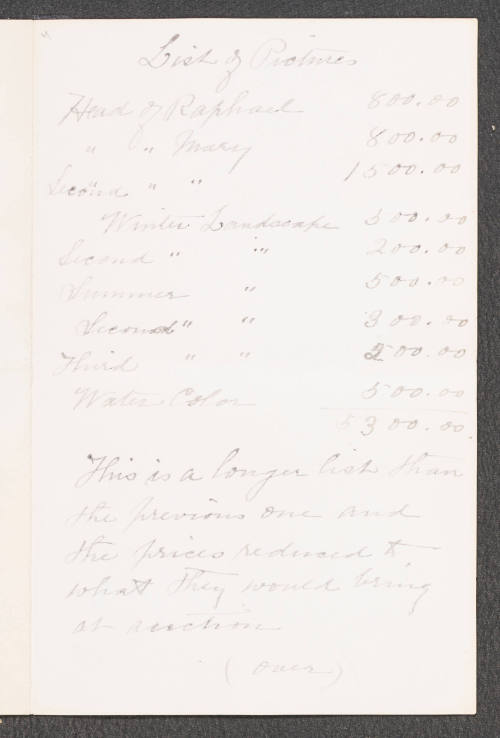 List of Pictures
Head of Raphael 800.00
" " Mary 800.00
Second " " 1500.00
Winter Landscape 500.00
Second " " 200.00
Summer " 500.00
Second " " 300.00
Third " " 200.00
Water Color 500.00
5300.00
This is a longer list than
the previous one and
the prices reduced to
what they would bring
at auction
(over)